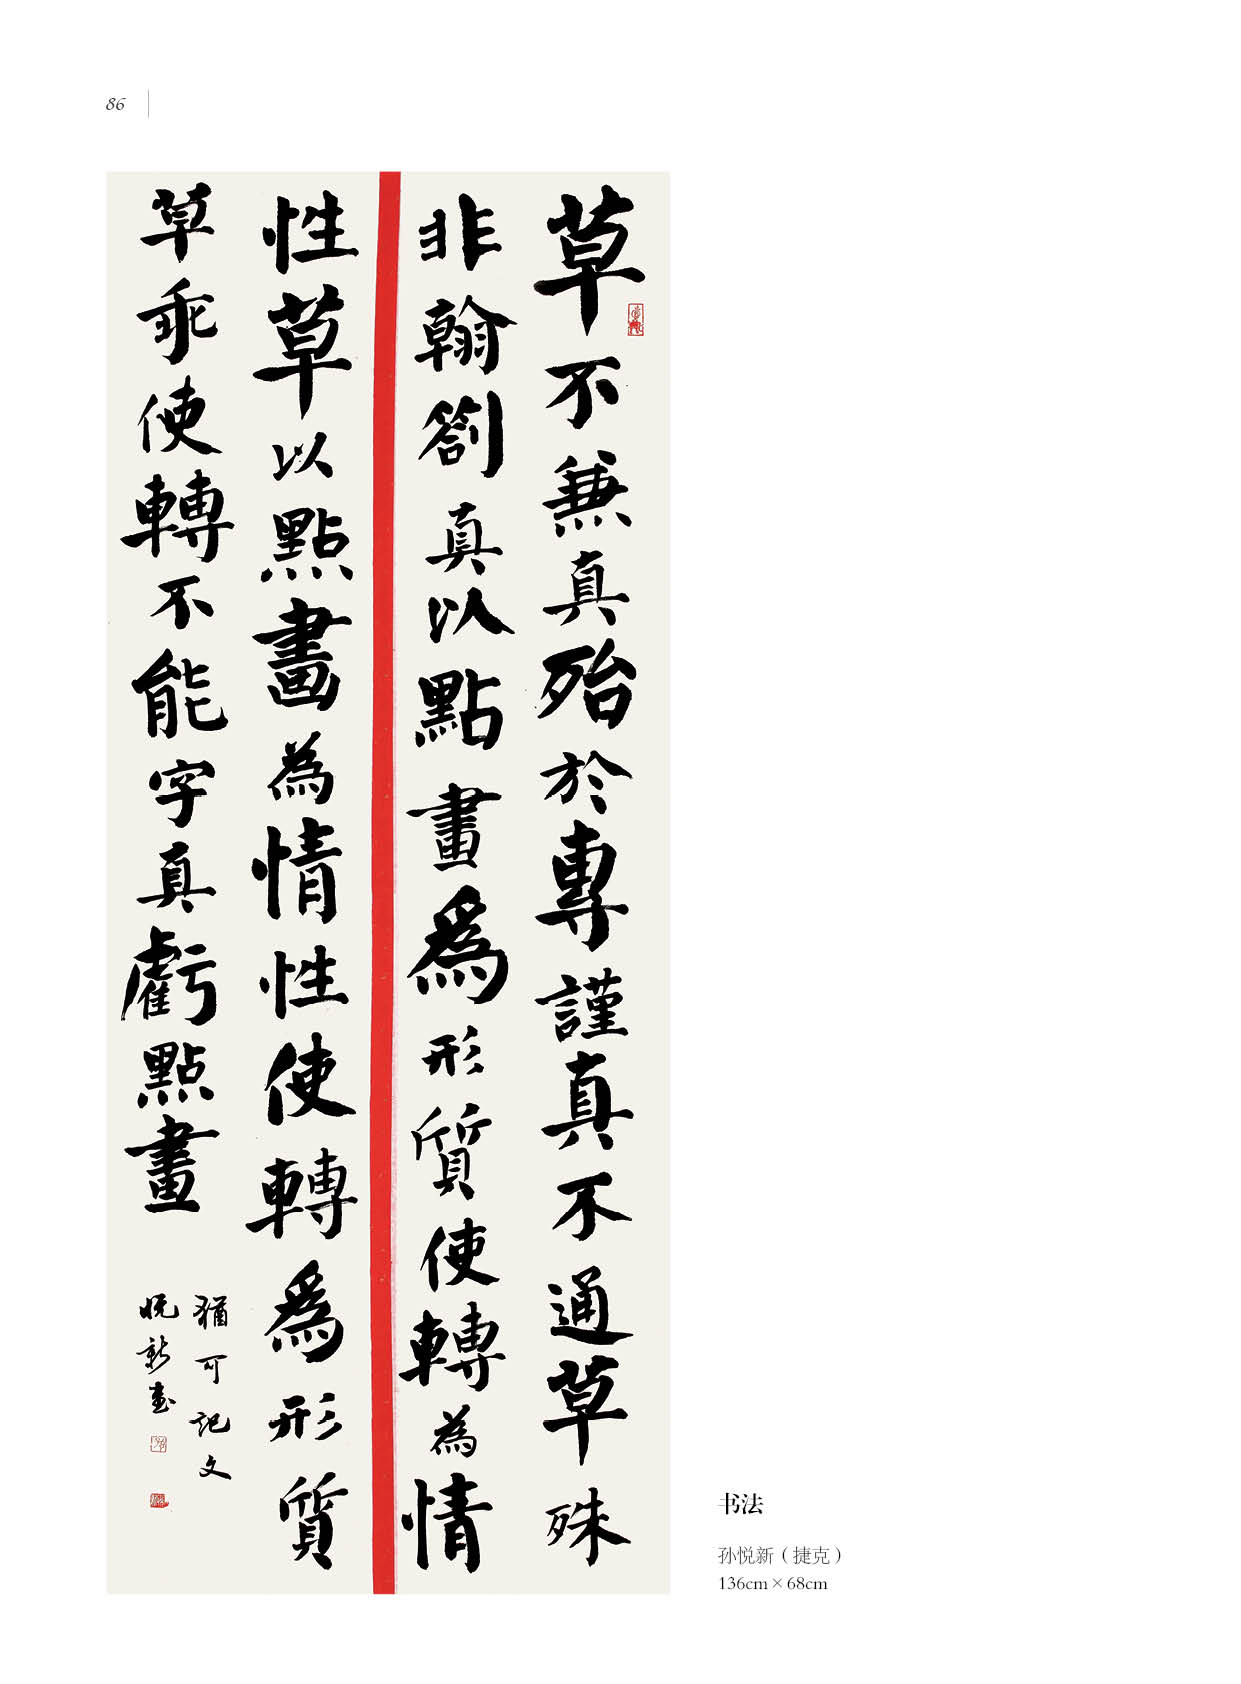 86
草不兼真殆於專謹真不通草殊
非翰劄真以點畫為形質使轉為情
性草以點畫為情性使轉為形質
草乖使轉不能字真虧點畫
猶可記文
悅新書
书法
孙悦新（捷克）
136cm×68cm